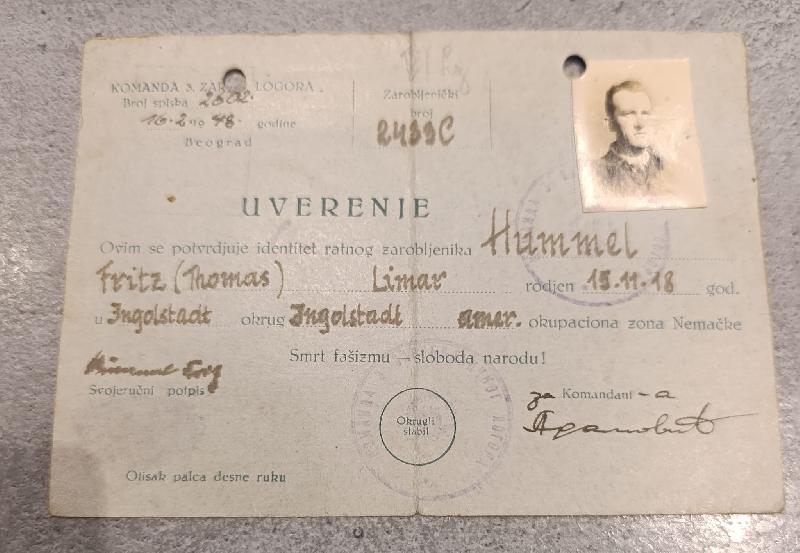 KOMANDA 3. ZAR. LOGORA
Broj spiska 2602.
16.2.1948. godine
Beograd
Zarobljenički
broj
2499C
UVERENJE
Ovim se potvrdjuje identitet ratnog zarobljenika Hummel
Fritz (Thomas) Limar rodjen 15.11.18 god.
u Ingolstadt okrug Ingolstadt amer. okupaciona zona Nemačke
Smrt fašizmu – sloboda narodu!
Svojeručni potpis
za Komandant-a
Okrugli
štabil
Otisak palca desne ruku